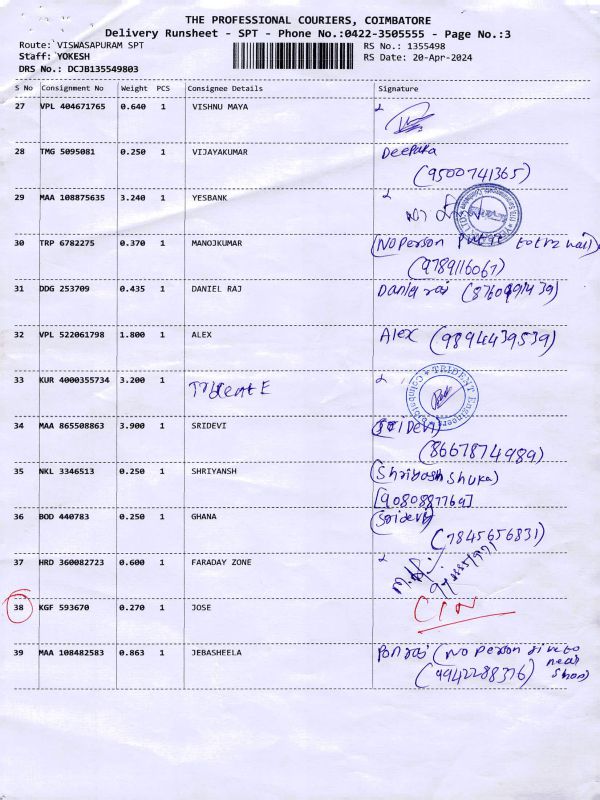 THE PROFESSIONAL COURIERS, COIMBATORE
Delivery Runsheet - SPT - Phone No.:0422-3505555 - Page No.:3
Route: VISWASAPURAM SPT RS No.: 1355498
Staff: YOKESH RS Date: 20-Apr-2024
DRS No.: DCJB135549803
S No Consignment No Weight PCS Consignee Details Signature
27 VPL 404671765 0.640 1 VISHNU MAYA
28 TMG 5095081 0.250 1 VIJAYAKUMAR Deepika
(9500741365)
29 MAA 108875635 3.240 1 YESBANK
30 TRP 6782275 0.370 1 MANOJKUMAR (No Person
(9789116067)
31 DDG 253709 0.435 1 DANIEL RAJ Daniel raj
32 VPL 522061798 1.800 1 ALEX Alex (9894439539)
33 KUR 4000355734 3.200 1 TRIDENT Engineers Coimbatore
34 MAA 865508863 3.900 1 SRIDEVI (SRIDEVI)
(8667874989)
35 NKL 3346513 0.250 1 SHRIYANSH
[9080887769]
36 BOD 440783 0.250 1 GHANA (Sridevi)
(7845656831)
37 HRD 360082723 0.600 1 FARADAY ZONE
38 KGF 593670 0.270 1 JOSE CIN
39 MAA 108482583 0.863 1 JEBASHEELA Ponraj (No Person give to
near
(9942288376) Shop)